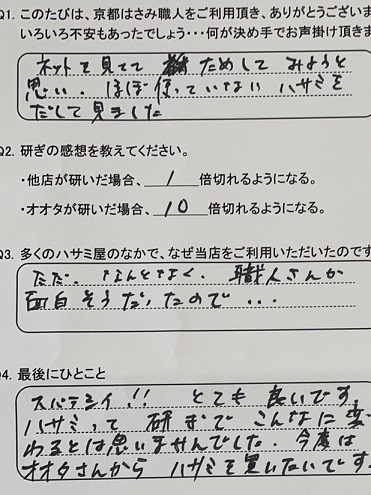 Q1. このたびは、京都はさみ職人をご利用頂き、ありがとうございま
いろいろ不安もあったでしょう・・・何が決め手でお声掛け頂きま
ネットで見てて ためして みようと
思い、ほぼ使っていない ハサミを
だして見ました
Q2. 研ぎの感想を教えてください。
・他店が研いだ場合、 1 倍切れるようになる。
・オオタが研いだ場合、 10 倍切れるようになる。
Q3. 多くのハサミ屋のなかで、なぜ当店をご利用いただいたのです
ただ、なんとなく、職人さんが
面白そうだったので、、、
Q4. 最後にひとこと
スバラシイ!! とても良いです。
ハサミって 研ぎで こんなに変
わるとは思いませんでした。今度は
オオタさんから ハサミを買いたいです。